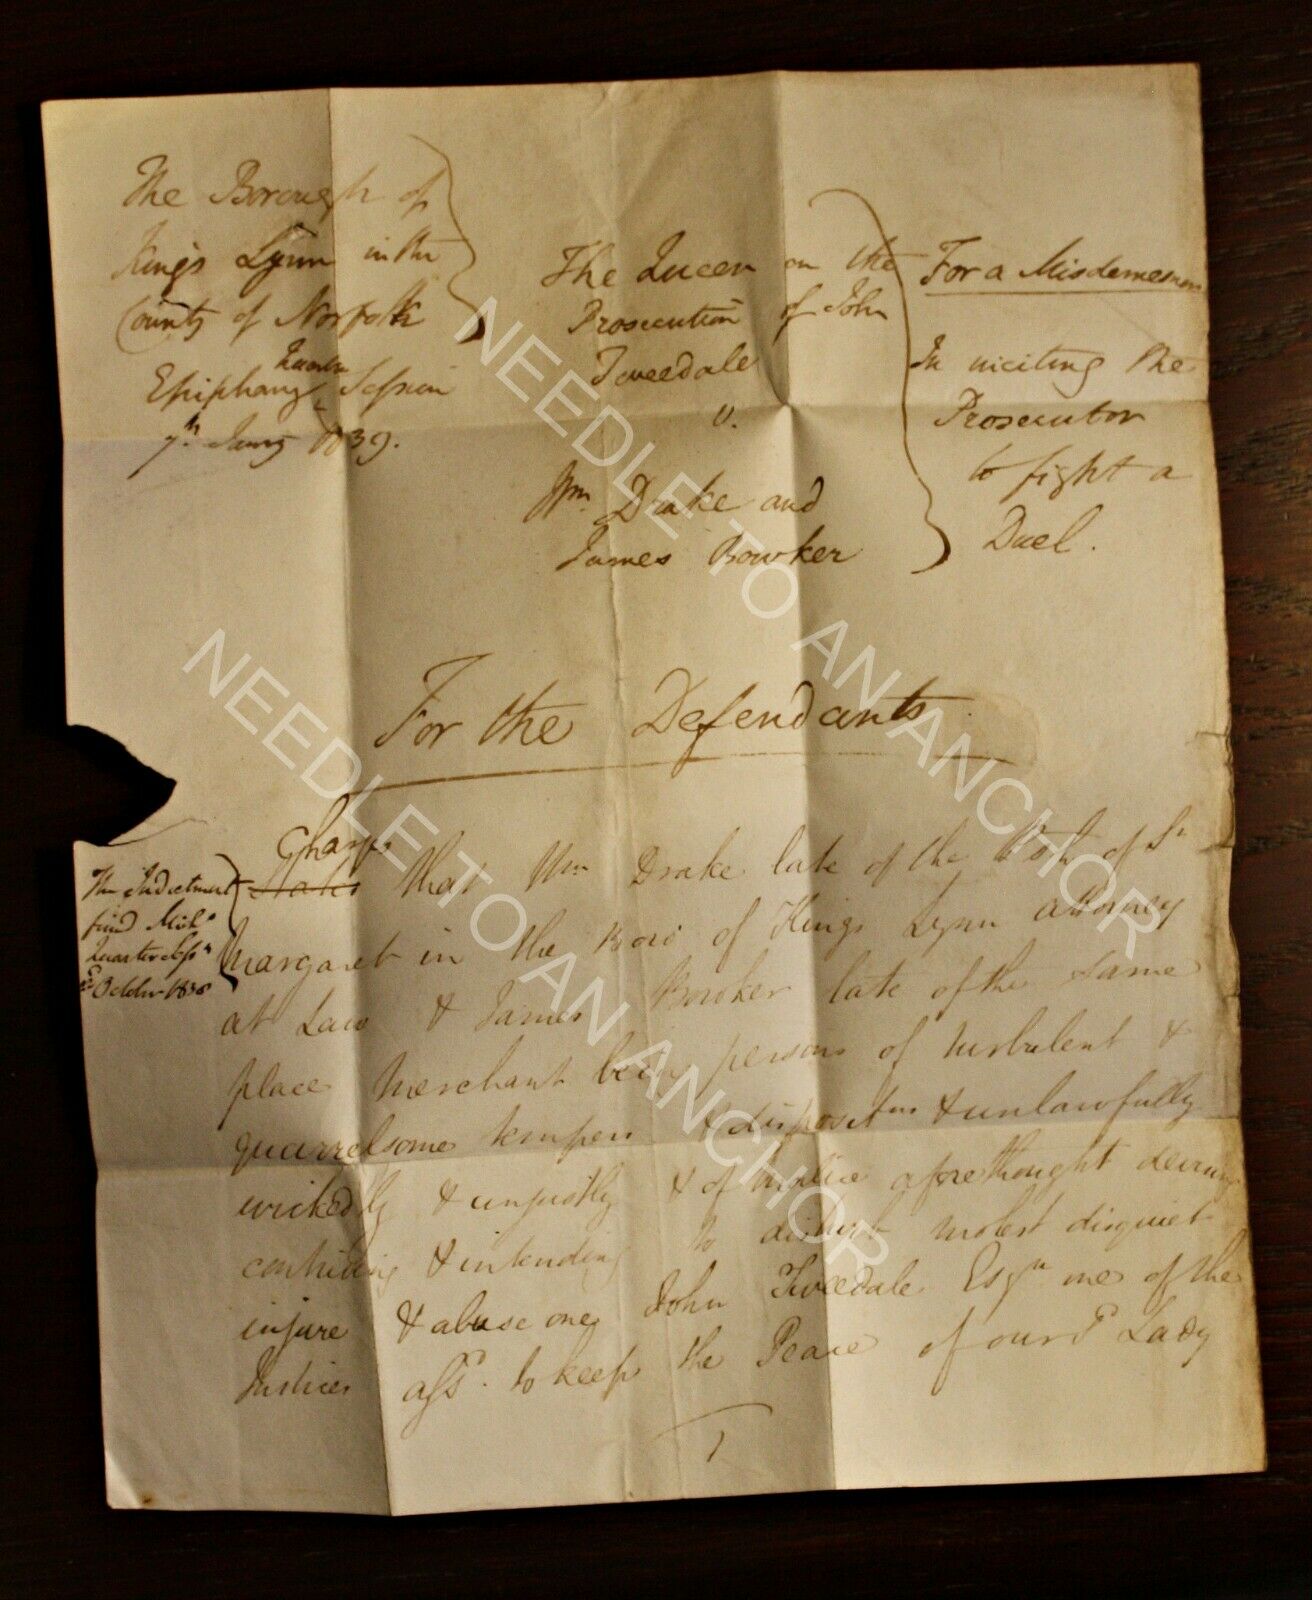 The Borough of
Kings Lynn in the
County of Norfolk
Epiphany Quarter Session
7th Jany 1839.
The Queen on the
Prosecution of John
Tweedale
v.
Wm Drake and
James Bowker
For a Misdemeanor
In inciting the
Prosecutor
to fight a
Duel.
For the Defendants
The Indictment
found Michs
Quarter Sessn
October 1838
Charges
States that Wm Drake late of the Psh of St
Margaret in the Boro' of Kings Lynn Attorney
at Law & James Bowker late of the same
place Merchant being persons of turbulent &
quarrelsome tempers & dispositns & unlawfully
wickedly & unjustly & of malice aforethought devising
contriving & intending to disturb molest disquiet
injure & abuse one John Tweedale Esqre one of the
Justices assd. to keep the Peace of our sd Lady
1
NEEDLE TO AN ANCHOR
NEEDLE TO AN ANCHOR